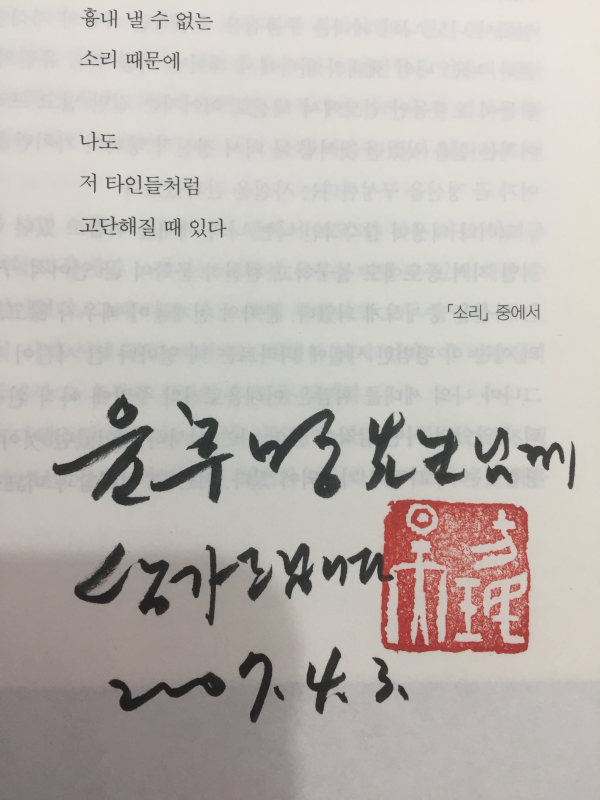 흉내 낼 수 없는
소리 때문에
나도
저 타인들처럼
고단해질 때 있다
「소리」 중에서
윤후명 선생님께
드립니다
2007. 4. 3.